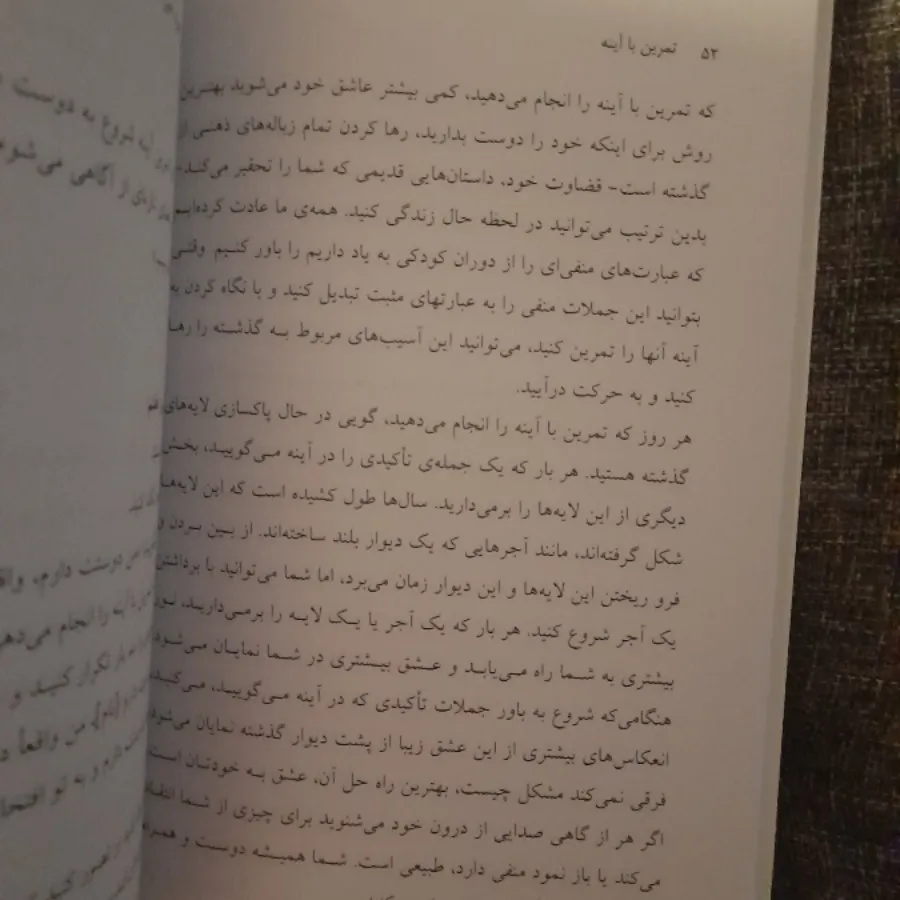 ۵۲ تمرین با آینه
که تمرین با آینه را انجام می‌دهید، کمی بیشتر عاشق خود می‌شوید بهترین
روش برای اینکه خود را دوست بدارید، رها کردن تمام زباله‌های ذهنی از
گذشته است- قضاوت خود، داستان‌هایی قدیمی که شما را تحقیر می‌کند-
بدین ترتیب می‌توانید در لحظه حال زندگی کنید. همه‌ی ما عادت کرده‌ایم
که عبارت‌های منفی‌ای را از دوران کودکی به یاد داریم را باور کنیم وقتی
بتوانید این جملات منفی را به عبارتهای مثبت تبدیل کنید و با نگاه کردن به
آینه آنها را تمرین کنید، می‌توانید این آسیب‌های مربوط به گذشته را رها
کنید و به حرکت درآیید.
هر روز که تمرین با آینه را انجام می‌دهید، گویی در حال پاکسازی لایه‌های
گذشته هستید. هر بار که یک جمله‌ی تأکیدی را در آینه می‌گویید، بخش
دیگری از این لایه‌ها را برمی‌دارید. سال‌ها طول کشیده است که این لایه‌ها
شکل گرفته‌اند، مانند آجرهایی که یک دیوار بلند ساخته‌اند. از بین بردن و
فرو ریختن این لایه‌ها و این دیوار زمان می‌برد، اما شما می‌توانید با برداشتن
یک آجر شروع کنید. هر بار که یک آجر یا یک لایه را برمی‌دارید، نور
بیشتری به شما راه می‌یابد و عشق بیشتری در شما نمایان می‌شود
هنگامی‌که شروع به باور جملات تأکیدی که در آینه می‌گویید، می‌کنید
انعکاس‌های بیشتری از این عشق زیبا از پشت دیوار گذشته نمایان می‌شود
فرقی نمی‌کند مشکل چیست، بهترین راه حل آن، عشق به خودتان است
اگر هر از گاهی صدایی از درون خود می‌شنوید برای چیزی از شما انتقاد
می‌کند یا باز نمود منفی دارد، طبیعی است. شما همیشه دوست و
به شروع به دوست
از آگاهی می‌شو
دوستت دارم، واق
آینه را انجام می‌ده
تکرار کنید و
من واقعاً د
دارم و به تو افتخا